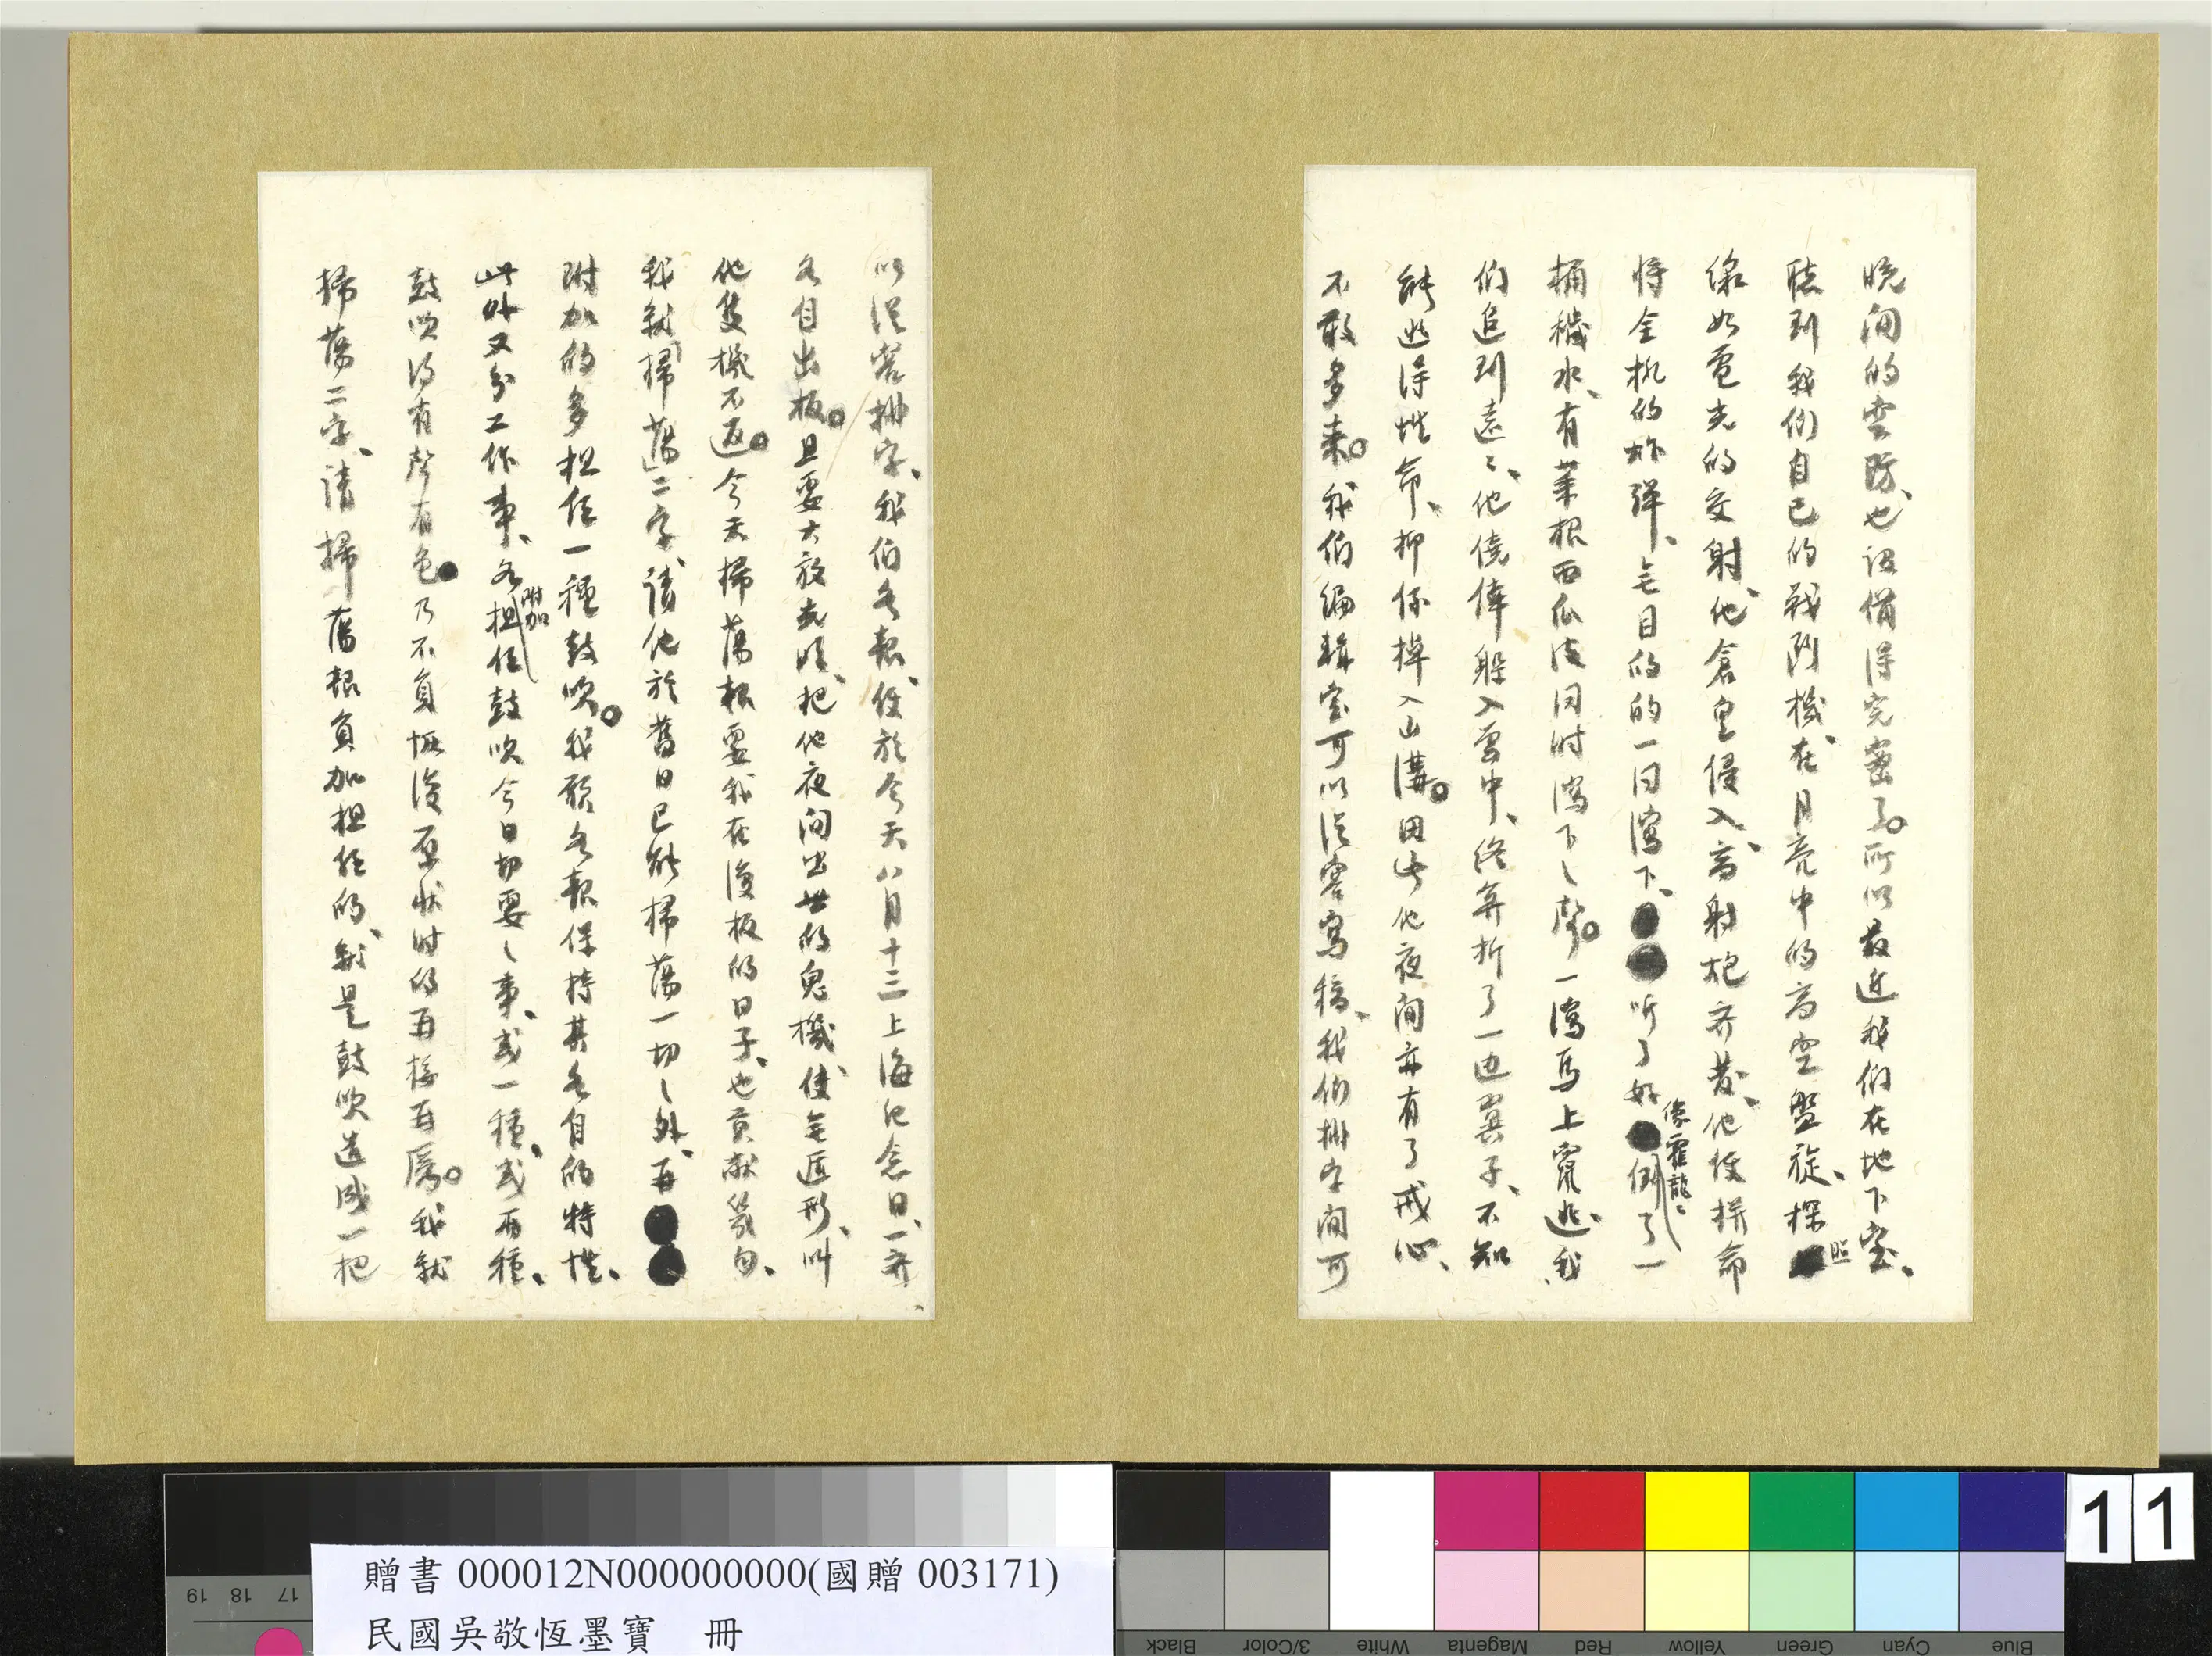 晚间的空防、也设備得完密了。所以最近我们在地下室、
聴到我们自己的戰鬥機、在月亮中的高空盤旋、探照
線如電光的交射、他倉皇侵入、高射炮齐发、他便拼命
将全机的炸弹、无目的的一同瀉下、听了好像霍龍、倒了一
桶穢水、有菜根西瓜皮同时瀉下之聲。一瀉馬上竄逃、我
们追到遠〻、他僥倖躲入雲中、終算折了一边翼子、不知
能逃得性命、抑係掉入山溝。因此他夜间亦有了戒心、
不敢多来。我们编輯室可以從容寫稿、我们排字间可
以從容排字、我们各報、便於今天八月十三上海纪念日、一齐、
各自出板。且要大放光明、把他夜间出世的鬼機、使無遁形、叫
他隻機不返。今天掃蕩報要我在復板的日子、也貢献幾句、
我就「掃蕩」二字、請他於舊日已能掃蕩一切之外、再
附加的多担任一種鼓吹。我願各報保持其各自的特性、
此外又分工作事、各附加担任鼓吹今日切要之事、或一種、或兩種、
鼓吹得有聲有色 乃不負恢復原状时的再接再厲。我就
掃蕩二字、請掃蕩報負加担任的、就是鼓吹造成一把
贈書 000012N000000000(國贈 003171)
民國吳敬恆墨寶 冊
11
19 18 17
Black 3/Color White Magenta Red Yellow Green Cyan Blue